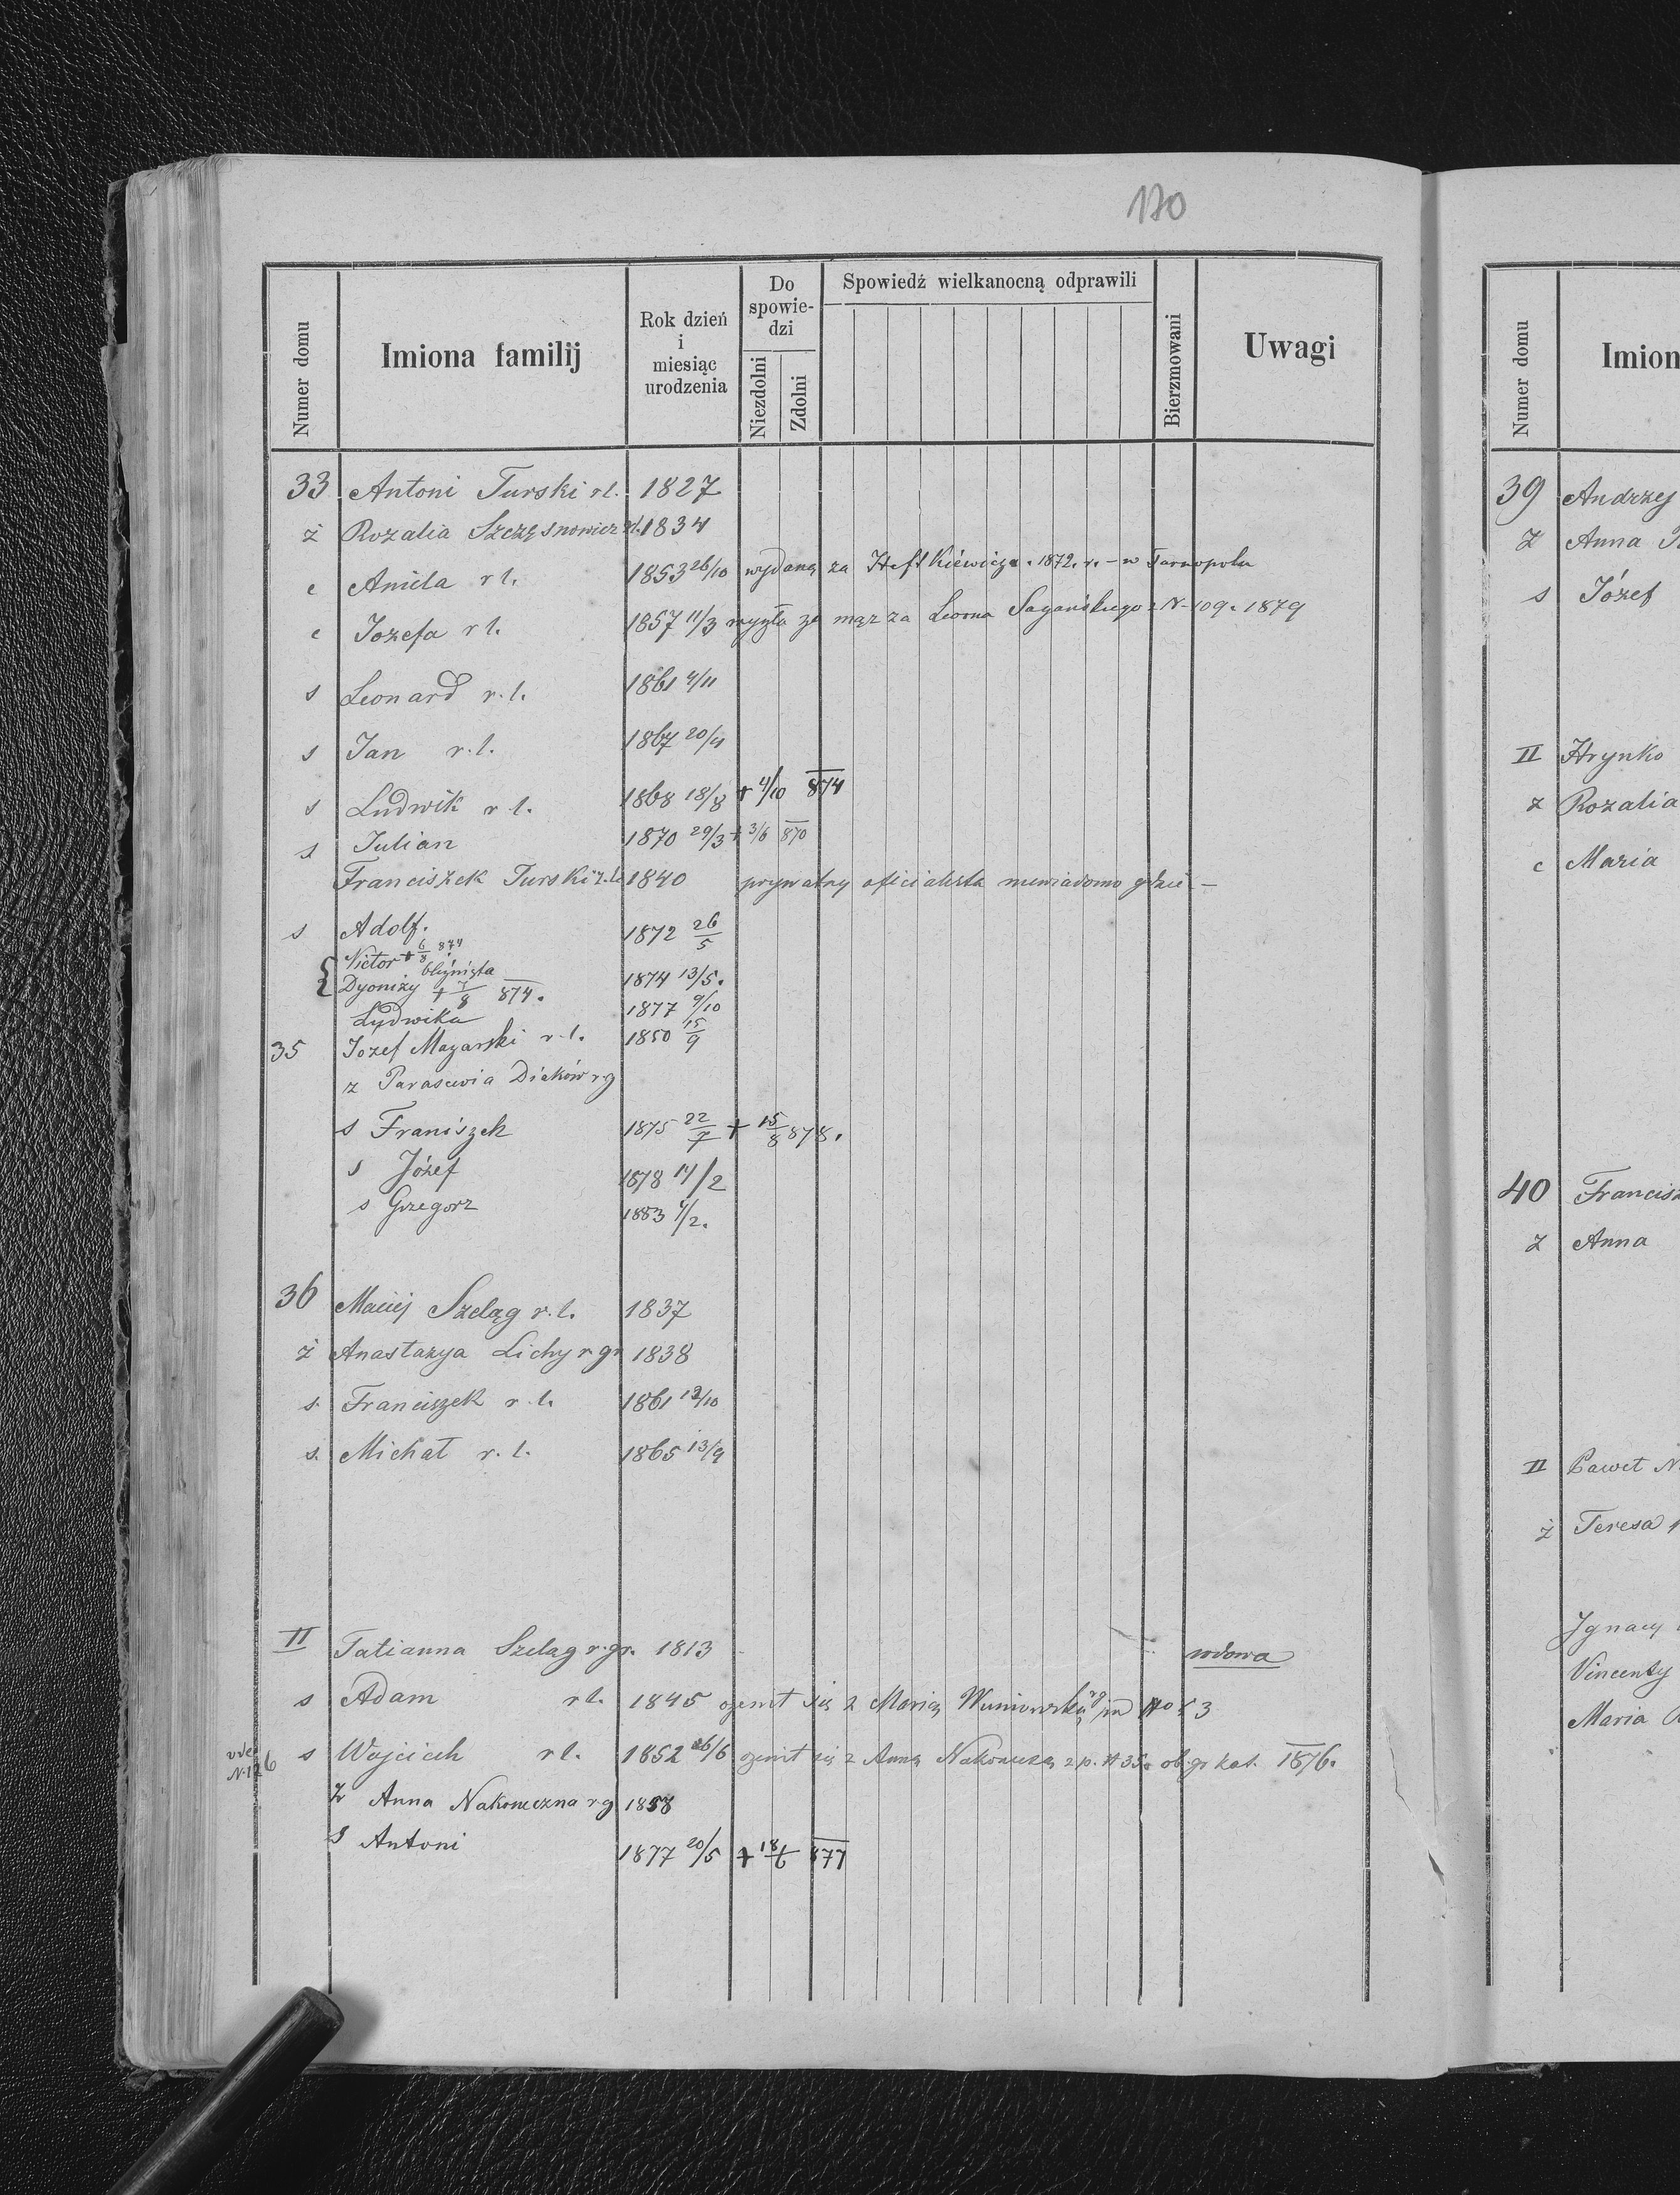 170
Numer domu
Imiona familij
Rok dzień i miesiąc urodzenia
Do spowiedzi
Niezdolni
Zdolni
Spowiedź wielkanocną odprawili
Bierzmowani
Uwagi
33 Antoni Turski rl. 1827
ż Rozalia Szczęsnowicz rl. 1834
c Aniela rl. 1853 26/10 wydaną za 1872. r. – w Tarnopolu
c Jozefa rl. 1857 11/3 wyszła za mąz za Leona Sagańskiego z N–109. 1879
s Leonard r.l. 1861 4/11
s Jan r.l. 1867 20/4
s Ludwik r l. 1868 18/8 + 4/10 874
s Julian 1870 29/3 + 3/6 870
Franciszek Turski r.l. 1840 prywatny oficialista niewiadomo gdzie –
s Adolf. 1872 26/5
{ Victor + 6/8 874
bliźnięta
Dyonizy + 7/8 874. 1874 13/5.
Ludwika 1877 9/10
35 Jozef Mazarski r.l. 1850 15/9
z Parascevia Diaków r.g
s Franiszek 1875 22/7 + 15/8 878.
s Józef 1878 14/2
s Grzegorz 1883 4/2.
36 Maciej Szeląg r.l. 1837
ż Anastazya Lichy r gr 1838
s. Franciszek r.l. 1861 12/10
s. Michał r.l. 1865 13/9
II Tatianna Szelag r.gr. 1813 wdowa
s Adam rl. 1845 ożenił się z Marią rg pod No 53
vide N. 126 s Wojciech rl. 1852 26/6 ożenił się z Anną Nakoneczną z p. N 35. ob. gr kat. 1876.
ż Anna Nakoneczna r g 1858
s Antoni 1877 20/5 + 18/6 877
Numer domu
Imion
39 Andrzej
ż Anna
s Józef
II Hrynko
z Rozalia
c Maria
40 Francisz
ż Anna
II Paweł N
ż Teresa
Ignacy
Vincenty
Maria